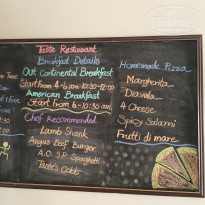 Taste Restaurant
Breakfast Details
Out Continental Breakfast
Start From 4-6 a.m
12:30-12:00
American Breakfast
Start From 6-10:30 am
Chef Recommended
Lamb Shank
Angus Beef Burger
A.O.P Spaghetti
Taste's Cobbs
Homemade Pizza
Margherita
Diavola
4 Cheese
Spicy Salami
Frutti di mare